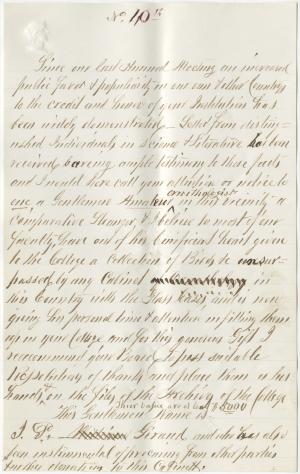 No. 10th
Since our last Annual Meeting an increased
public favor & popularity in our own & other Country
to the credit and honor of your Institution has
been widely demonstrated. Letters from distin-
uished Individuals in Science & Literature has been
received bearing ample testimony to these facts
and I would here call your attention or notice to
one a Gentleman Amateur ornithologist in this vicinity a
comparative Stranger, & I believe to most of our
Faculty, have out of his beneficent heart given
to the College a Collection of Birds unsur-
passed by any Cabinet in
this Country with the Glass Cases and is now
giving his personal time & attention in fitting them
up in your College and for this generous Gift I
reccommend your Board to pass suitable
resolutions of thanks and place them on
the files of the Archives of the College
This Gentlemans name is
their value are at least $8000
J. P. Giraud and who has also
been instrumental of procuring from other parties
further donations to this Cabinet